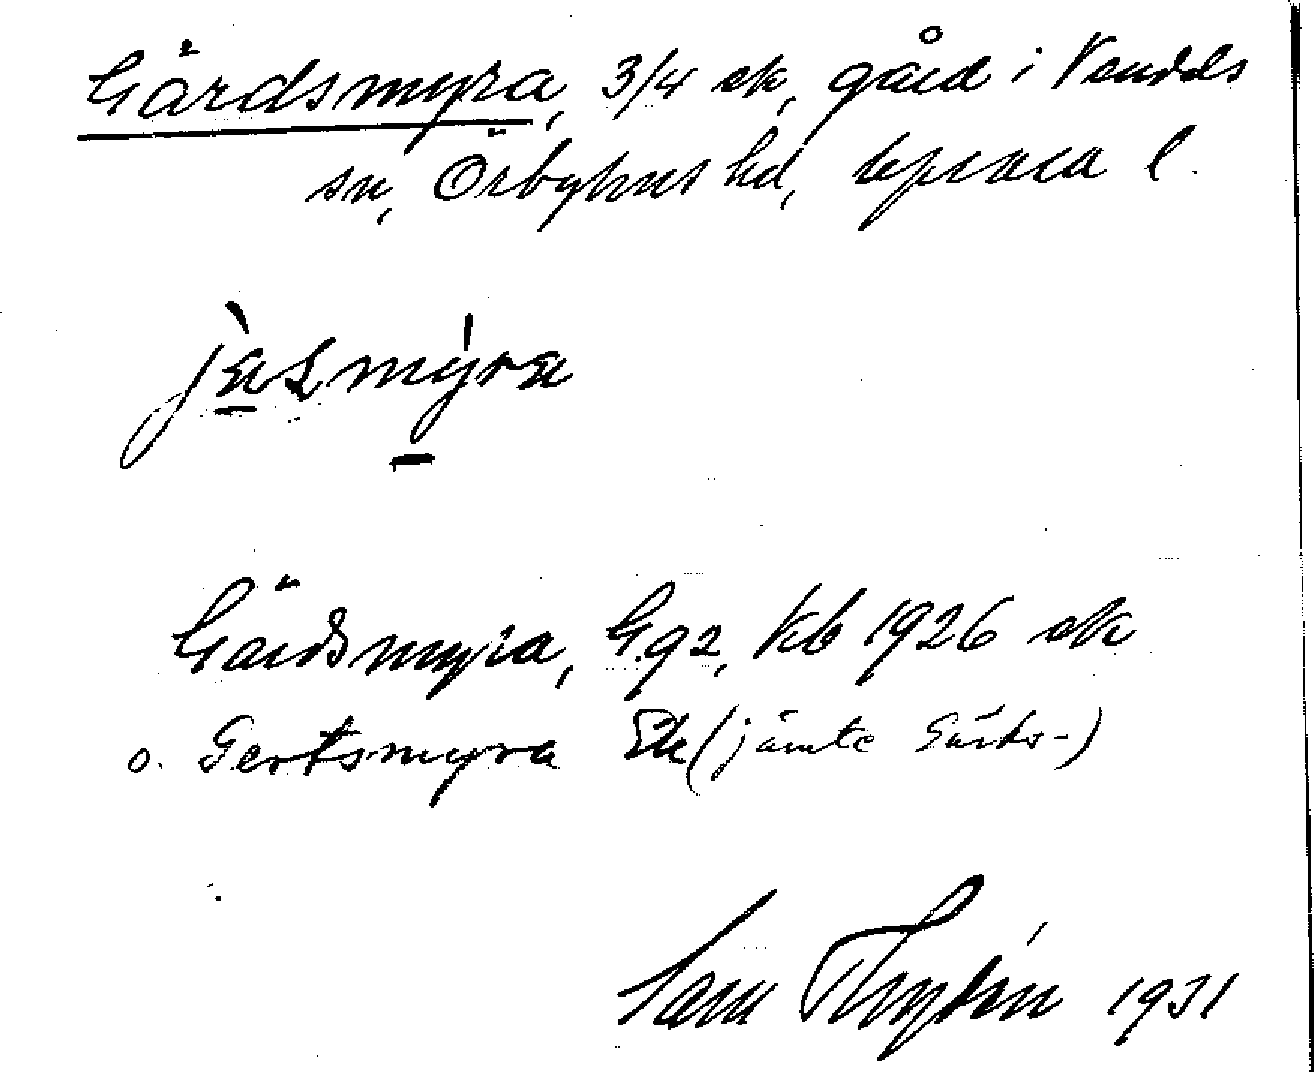 Gärdsmyra, 3/4 ek, gård i Vendels
sn, Örbyhus hd, Uppsala l.
jæʟmýra
Gärdsmyra, G92, Kb 1926 ek
o. Gertsmyra Ek (jämte Gärds-)
1931